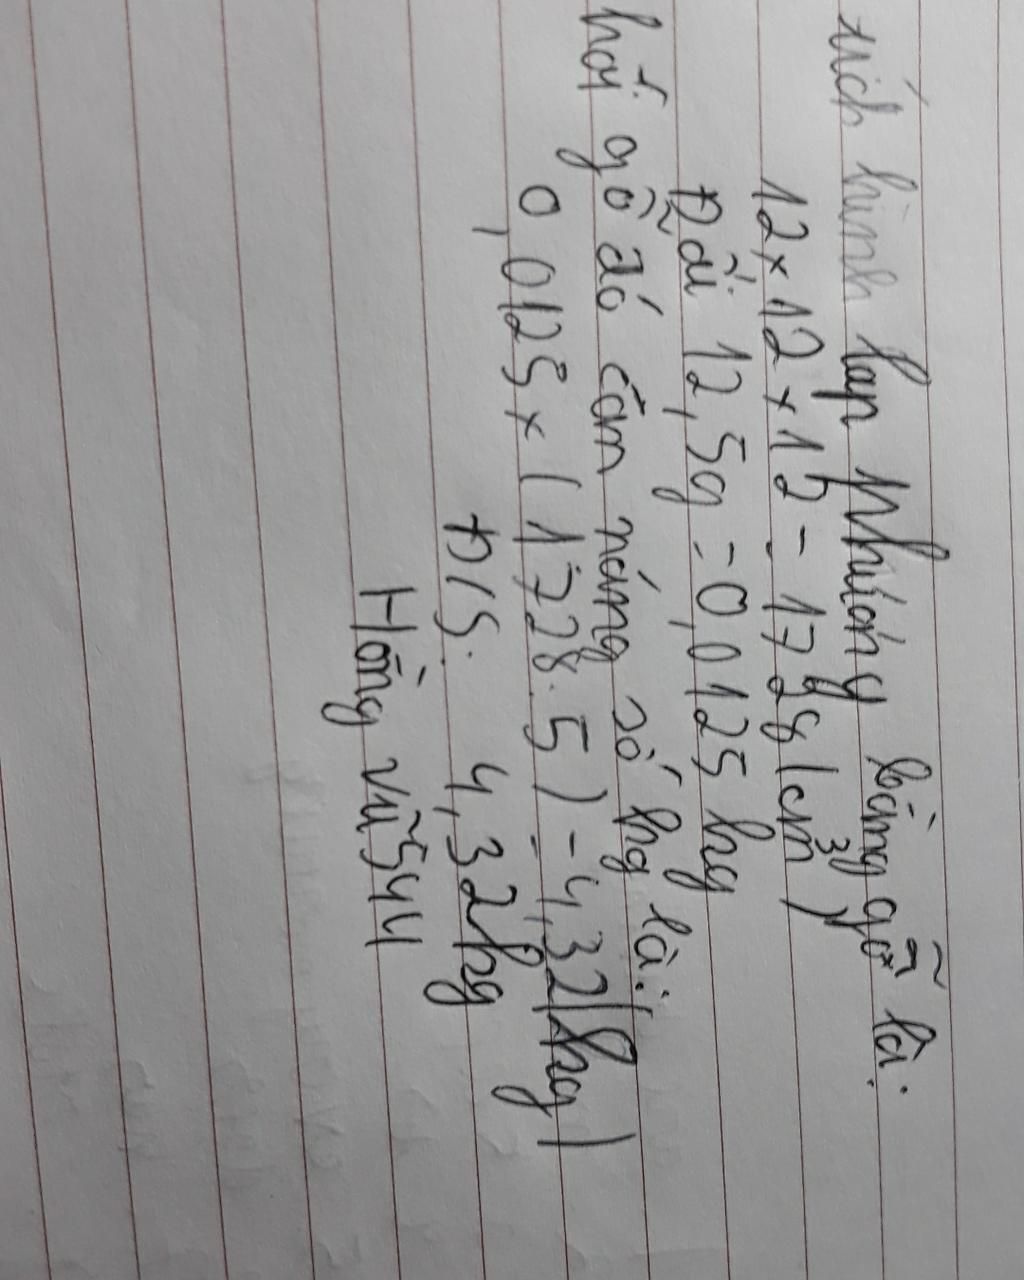 tích hình lập phương bằng gỗ là:
12 x 12 x 12 = 1728 (cm³)
Đổi 12,5g = 0,0125 kg
hối gỗ đó cân nặng số kg là:
0,0125 x (1728:5) = 4,32 (kg)
Đ/S: 4,32kg
Hồng Vũ 5A4